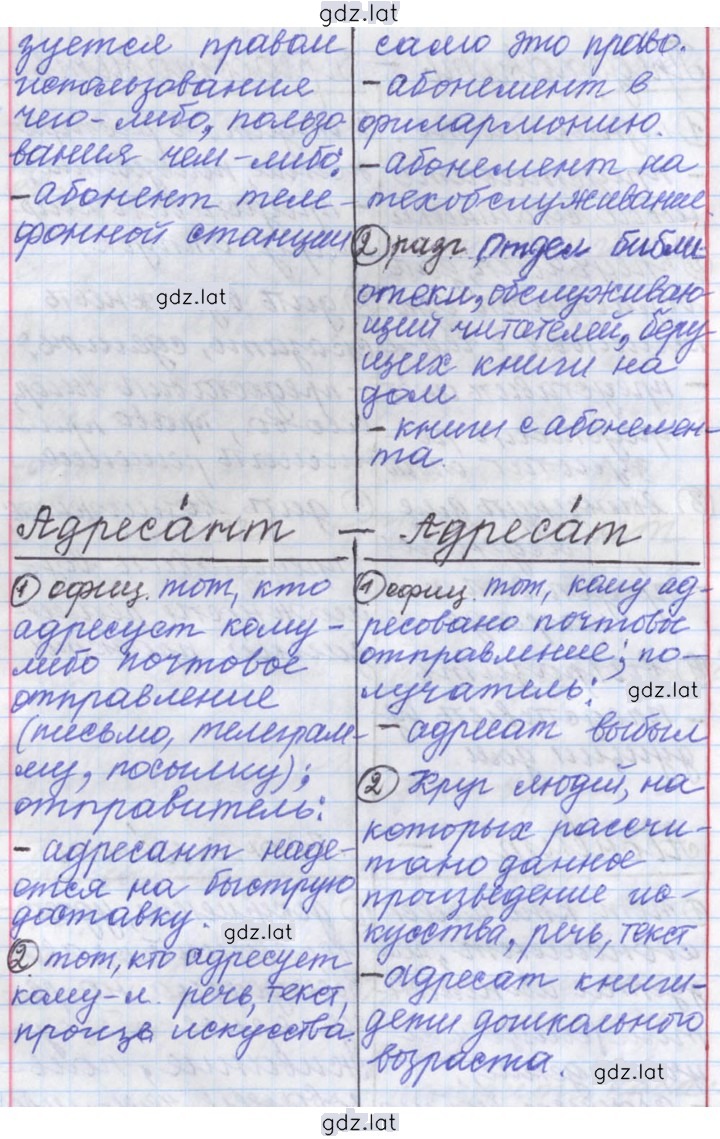 gdz.lat
зуется правом
использования
чего-либо, пользо
вания чем-либо:
- абонент теле-
фонной станции
gdz.lat
само это право.
- абонемент в
филармонию.
- абонемент на
техобслуживание.
2 разг. отдел библи
отеки, обслуживаю
щий читателей, беру
щих книги на
дом
- книги с абонемен-
та.
Адреса́нт — Адреса́т
1 офиц. тот, кто
адресует кому-
либо почтовое
отправление
(письмо, телеграм-
му, посылку);
отправитель:
- адресант наде-
ется на быструю
доставку.
gdz.lat
2 тот, кто адресует
кому-л. речь, текст,
произв. искусства.
1 офиц. тот, кому ад-
ресовано почтовое
отправление; по-
лучатель:
gdz.lat
- адресат выбыл
2 Круг людей, на
которых рассчи-
тано данное
произведение ис-
кусства, речь, текст.
- адресат книги-
дети дошкольного
возраста.
gdz.lat
gdz.lat